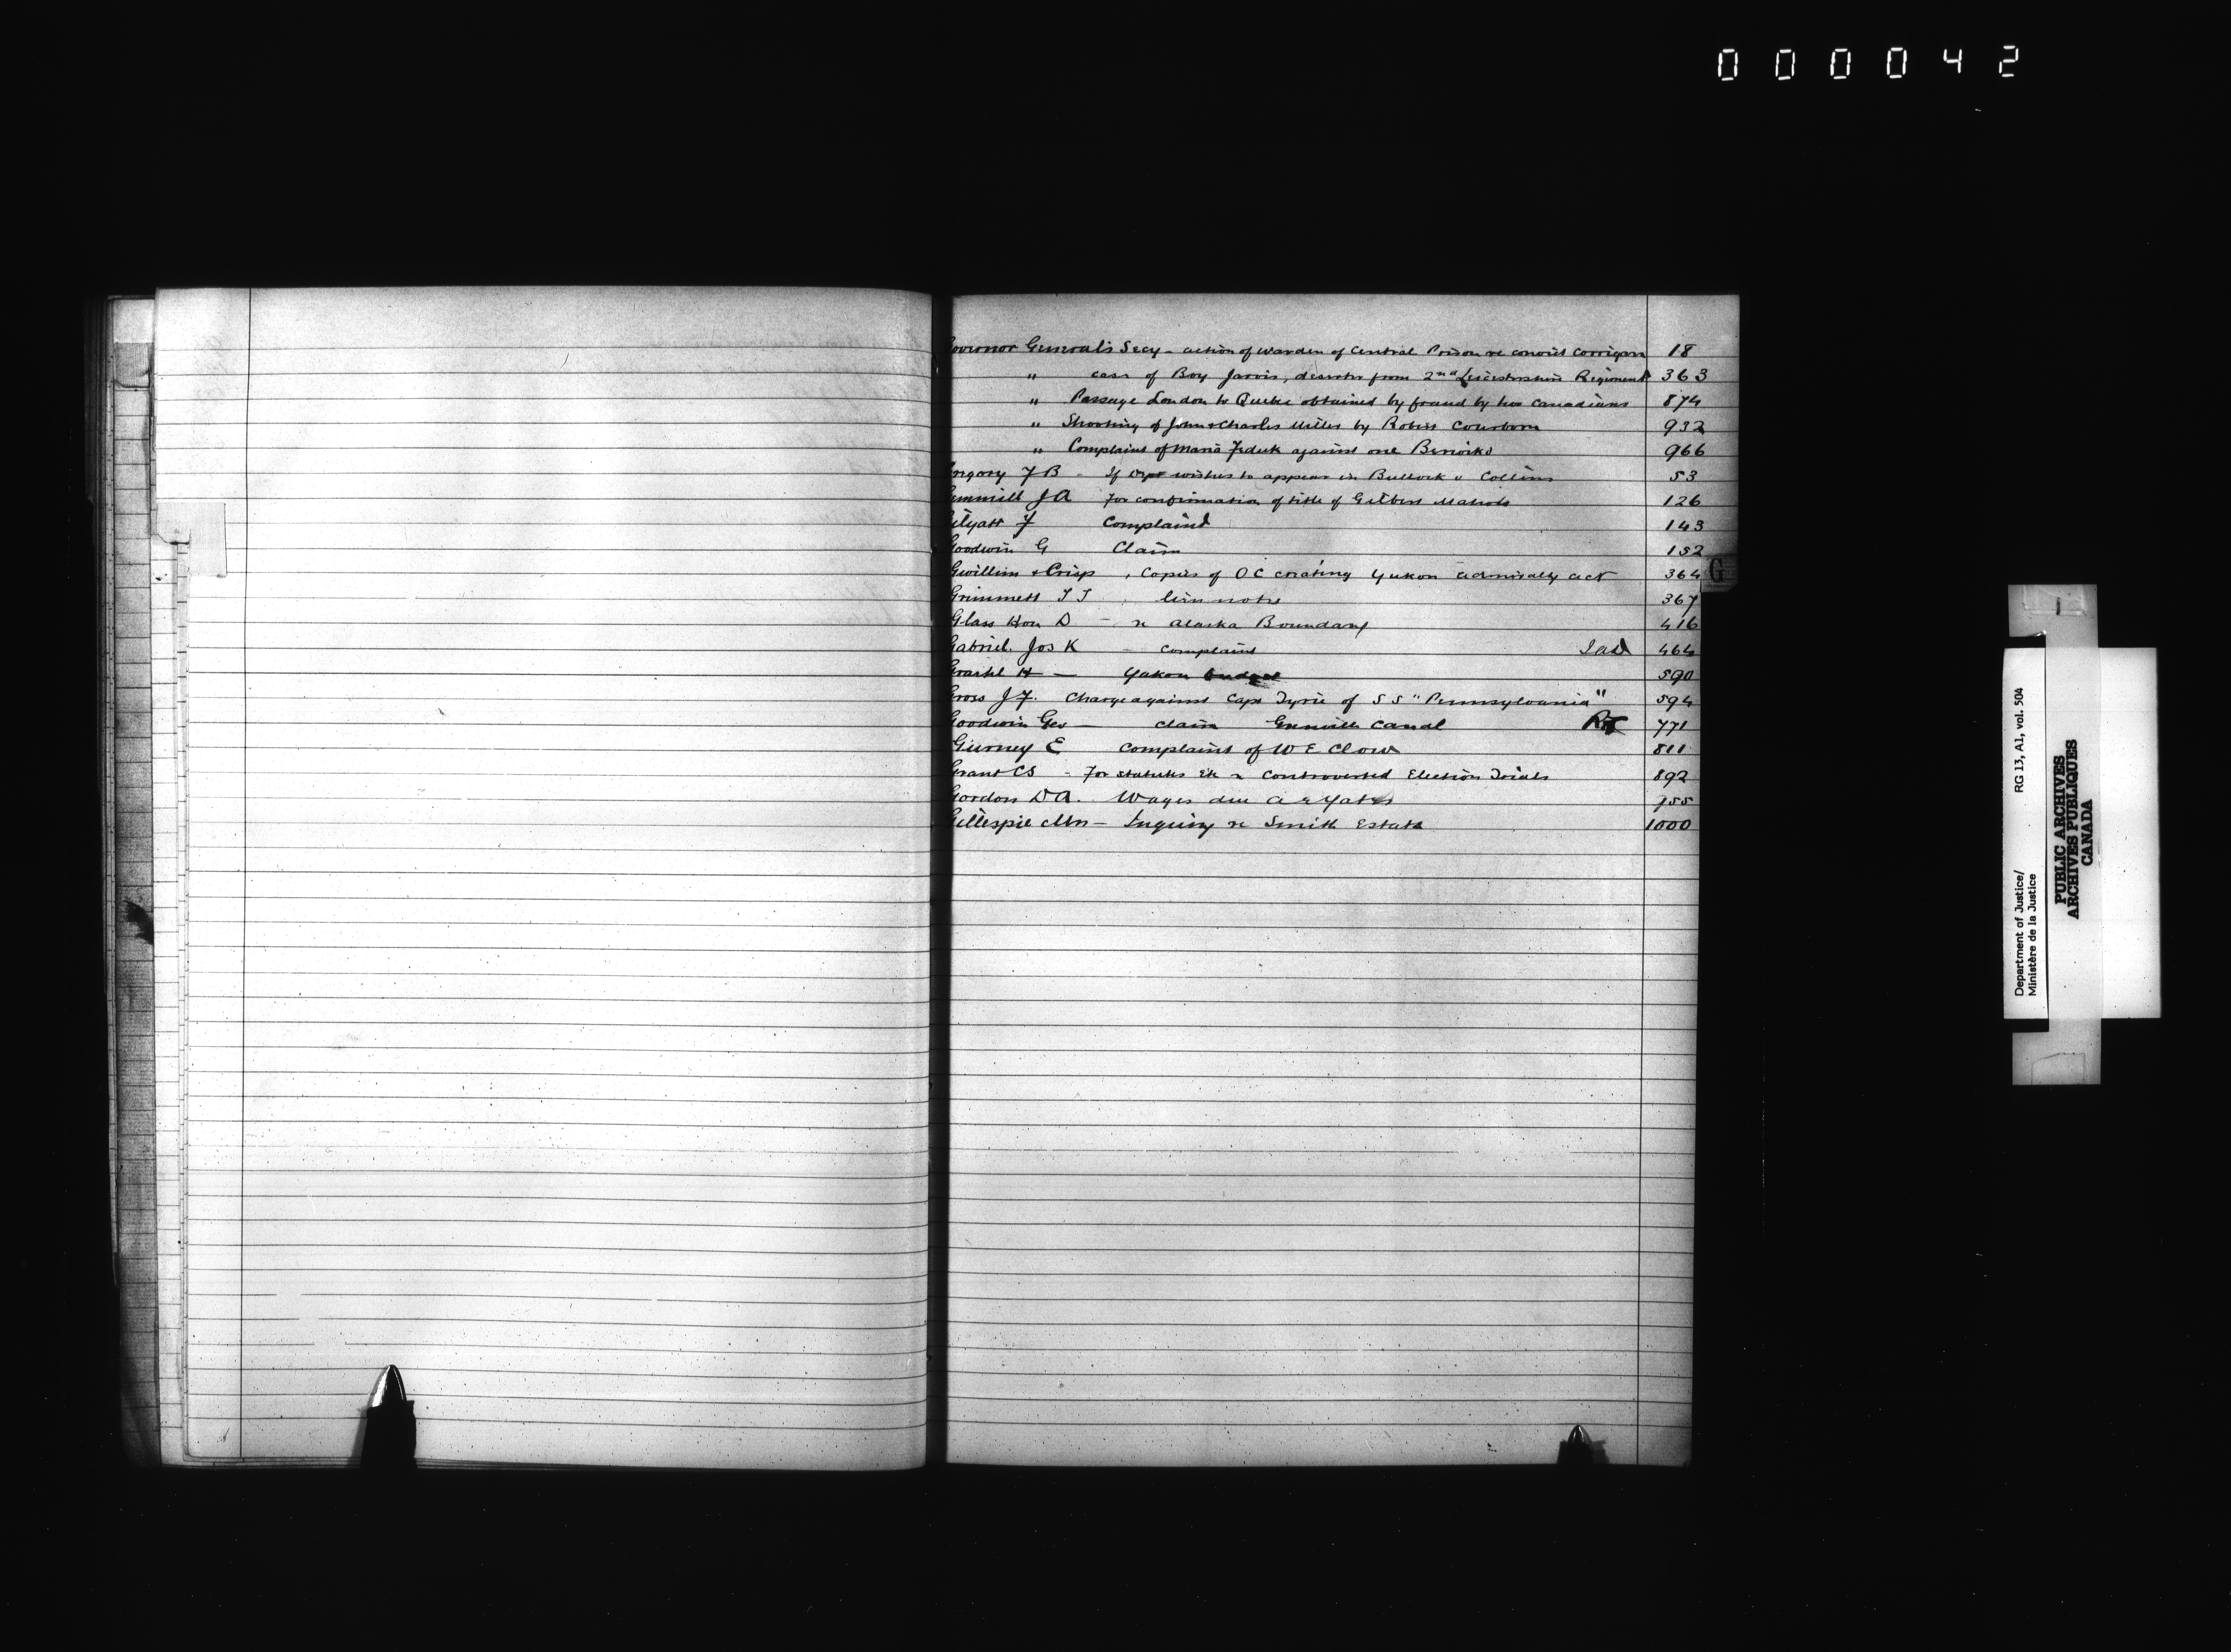 000042
Governor General's Secy - action of Warden of Central Prison re convict Corrigan 18
" case of Boy Jarvis, deserter from 2nd Leicestershire Regiment 363
" Passage London to Quebec obtained by fraud by two Canadians 874
" Shooting of John & Charles Miller by Robert 932
" Complaint of Maria against one 966
Gregory F B - If Dept wishes to appear in Bullock v Collins 53
Gemmill J A For confirmation of title of Gilbert 126
F Complaint 143
Goodwin G Claim 152
Gwillim & Crisp, Copies of O C creating Yukon Admiralty Act 364
G
Grimmett T J, lien notes 367
Glass Hon D - re Alaska Boundary 416
Gabriel Jos K - Complaint Ind 464
H - Yukon 590
Gross J F. Charge against Capt Tyrie of S S "Pennsylvania" 594
Goodwin Geo - Claim Grenville Canal 771
Gurney E Complaint of W E Clow 811
Grant C S - For statutes Etc re Controverted Election Trials 892
Gordon D A. Wages due A E Yates 955
Gillespie Mrs - Inquiry re Smith Estate 1000
Department of Justice/
Ministère de la Justice
RG 13, A1, vol. 504
PUBLIC ARCHIVES
ARCHIVES PUBLIQUES
CANADA